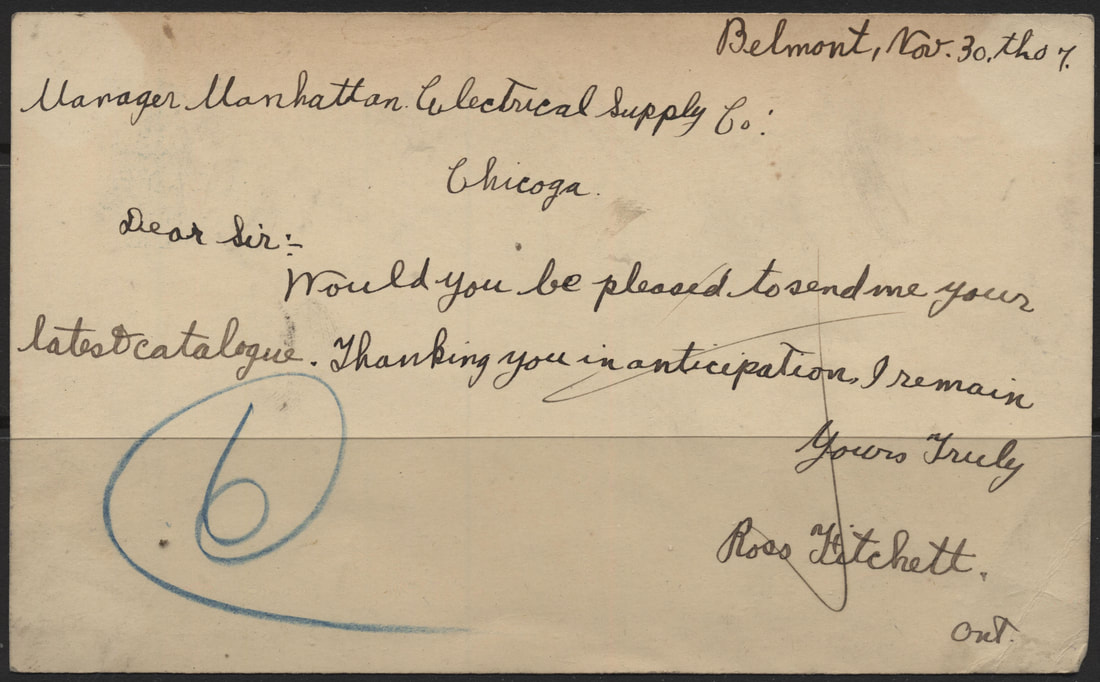 Belmont, Nov. 30, th 07.
Manager Manhattan Electrical Supply Co:
Chicoga.
Dear Sir:-
Would you be pleased to send me your
latest catalogue. Thanking you in anticipation, I remain
Yours Truly
Ross Fitchett.
Ont.
6